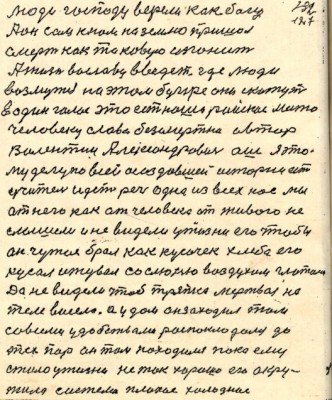 люди господу верели как богу 132
Аон сам к нам на землю пришол 127
смерть как таковую изгонит
А жизнь во славу введет где люди
возмутся на этом бугре они скажут
в один голос это есть наша райское место
человеку слова безсмертна автор
Валентин Александрович аш. Я это
му делу по всей создавшей истории ст
считом идет реч одна из всех нас мы
от него как от человека от живого не
слышели и не видели у жизни его чтобы
он чужоя брал как кусочек хлеба его
кусал и жувал со слюною воздухом глотал
Да не видели чтоб тряпка мертвая на
теле висела. а у дом он заходил там
совсеми удобствами располюгали до
тех пор он там находился поко ему
стало у жизни не так хорошо его окру
жила система плохая холодная